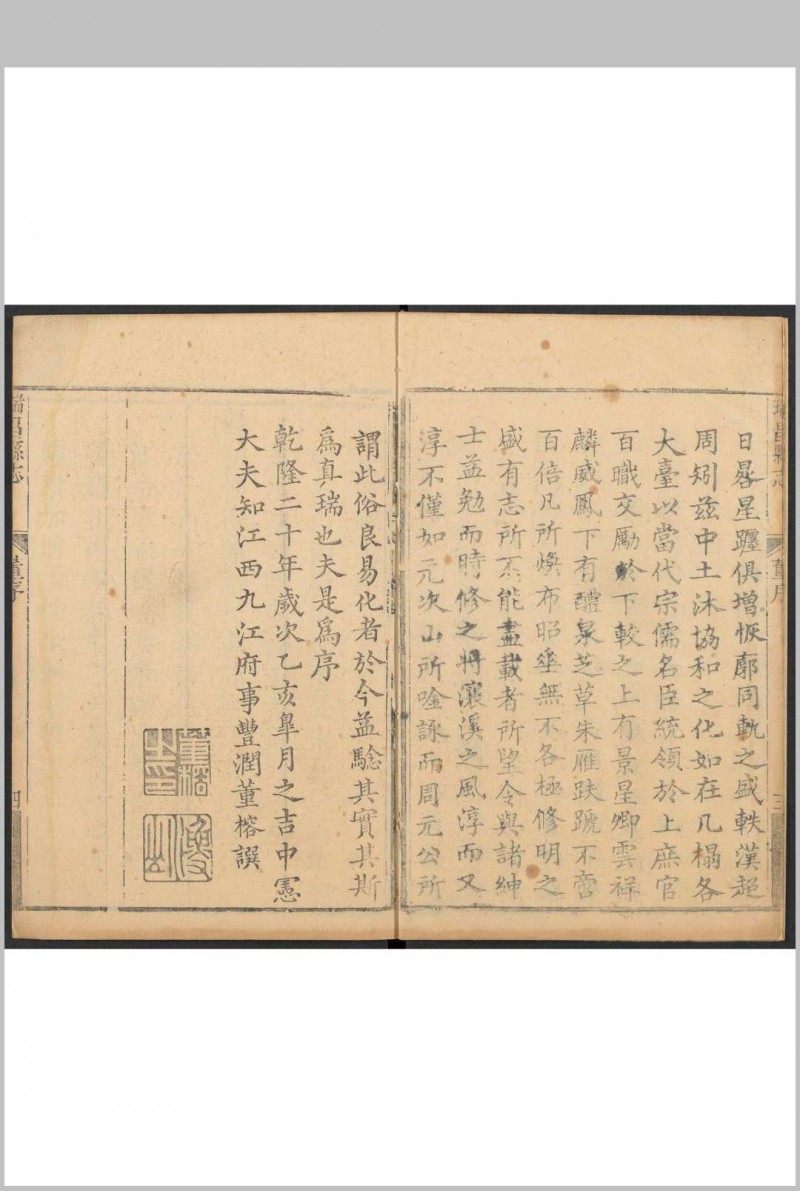 瑞昌縣志 董序 三
日晷星躔俱增恢廓同軌之盛軼漢超
周矧茲中土沐協和之化如在几榻各
大臺以當代宗儒名臣統領於上庶官
百職交勵於下較之上有景星卿雲祥
麟威鳳下有醴泉芝草朱雁趺蹏不啻
百倍凡所煥布昭垂無不各極修明之
盛有志所不能盡載者所望令與諸紳
士益勉而時修之將瀼溪之風淳而又
淳不僅如元次山所唫詠而周元公所
謂此俗良易化者於今益騐其實其斯
為真瑞也夫是為序
乾隆二十年歲次乙亥皐月之吉中憲
大夫知江西九江府事豐潤董榕譔
董榕之印
漁山
瑞昌縣志 董序 四